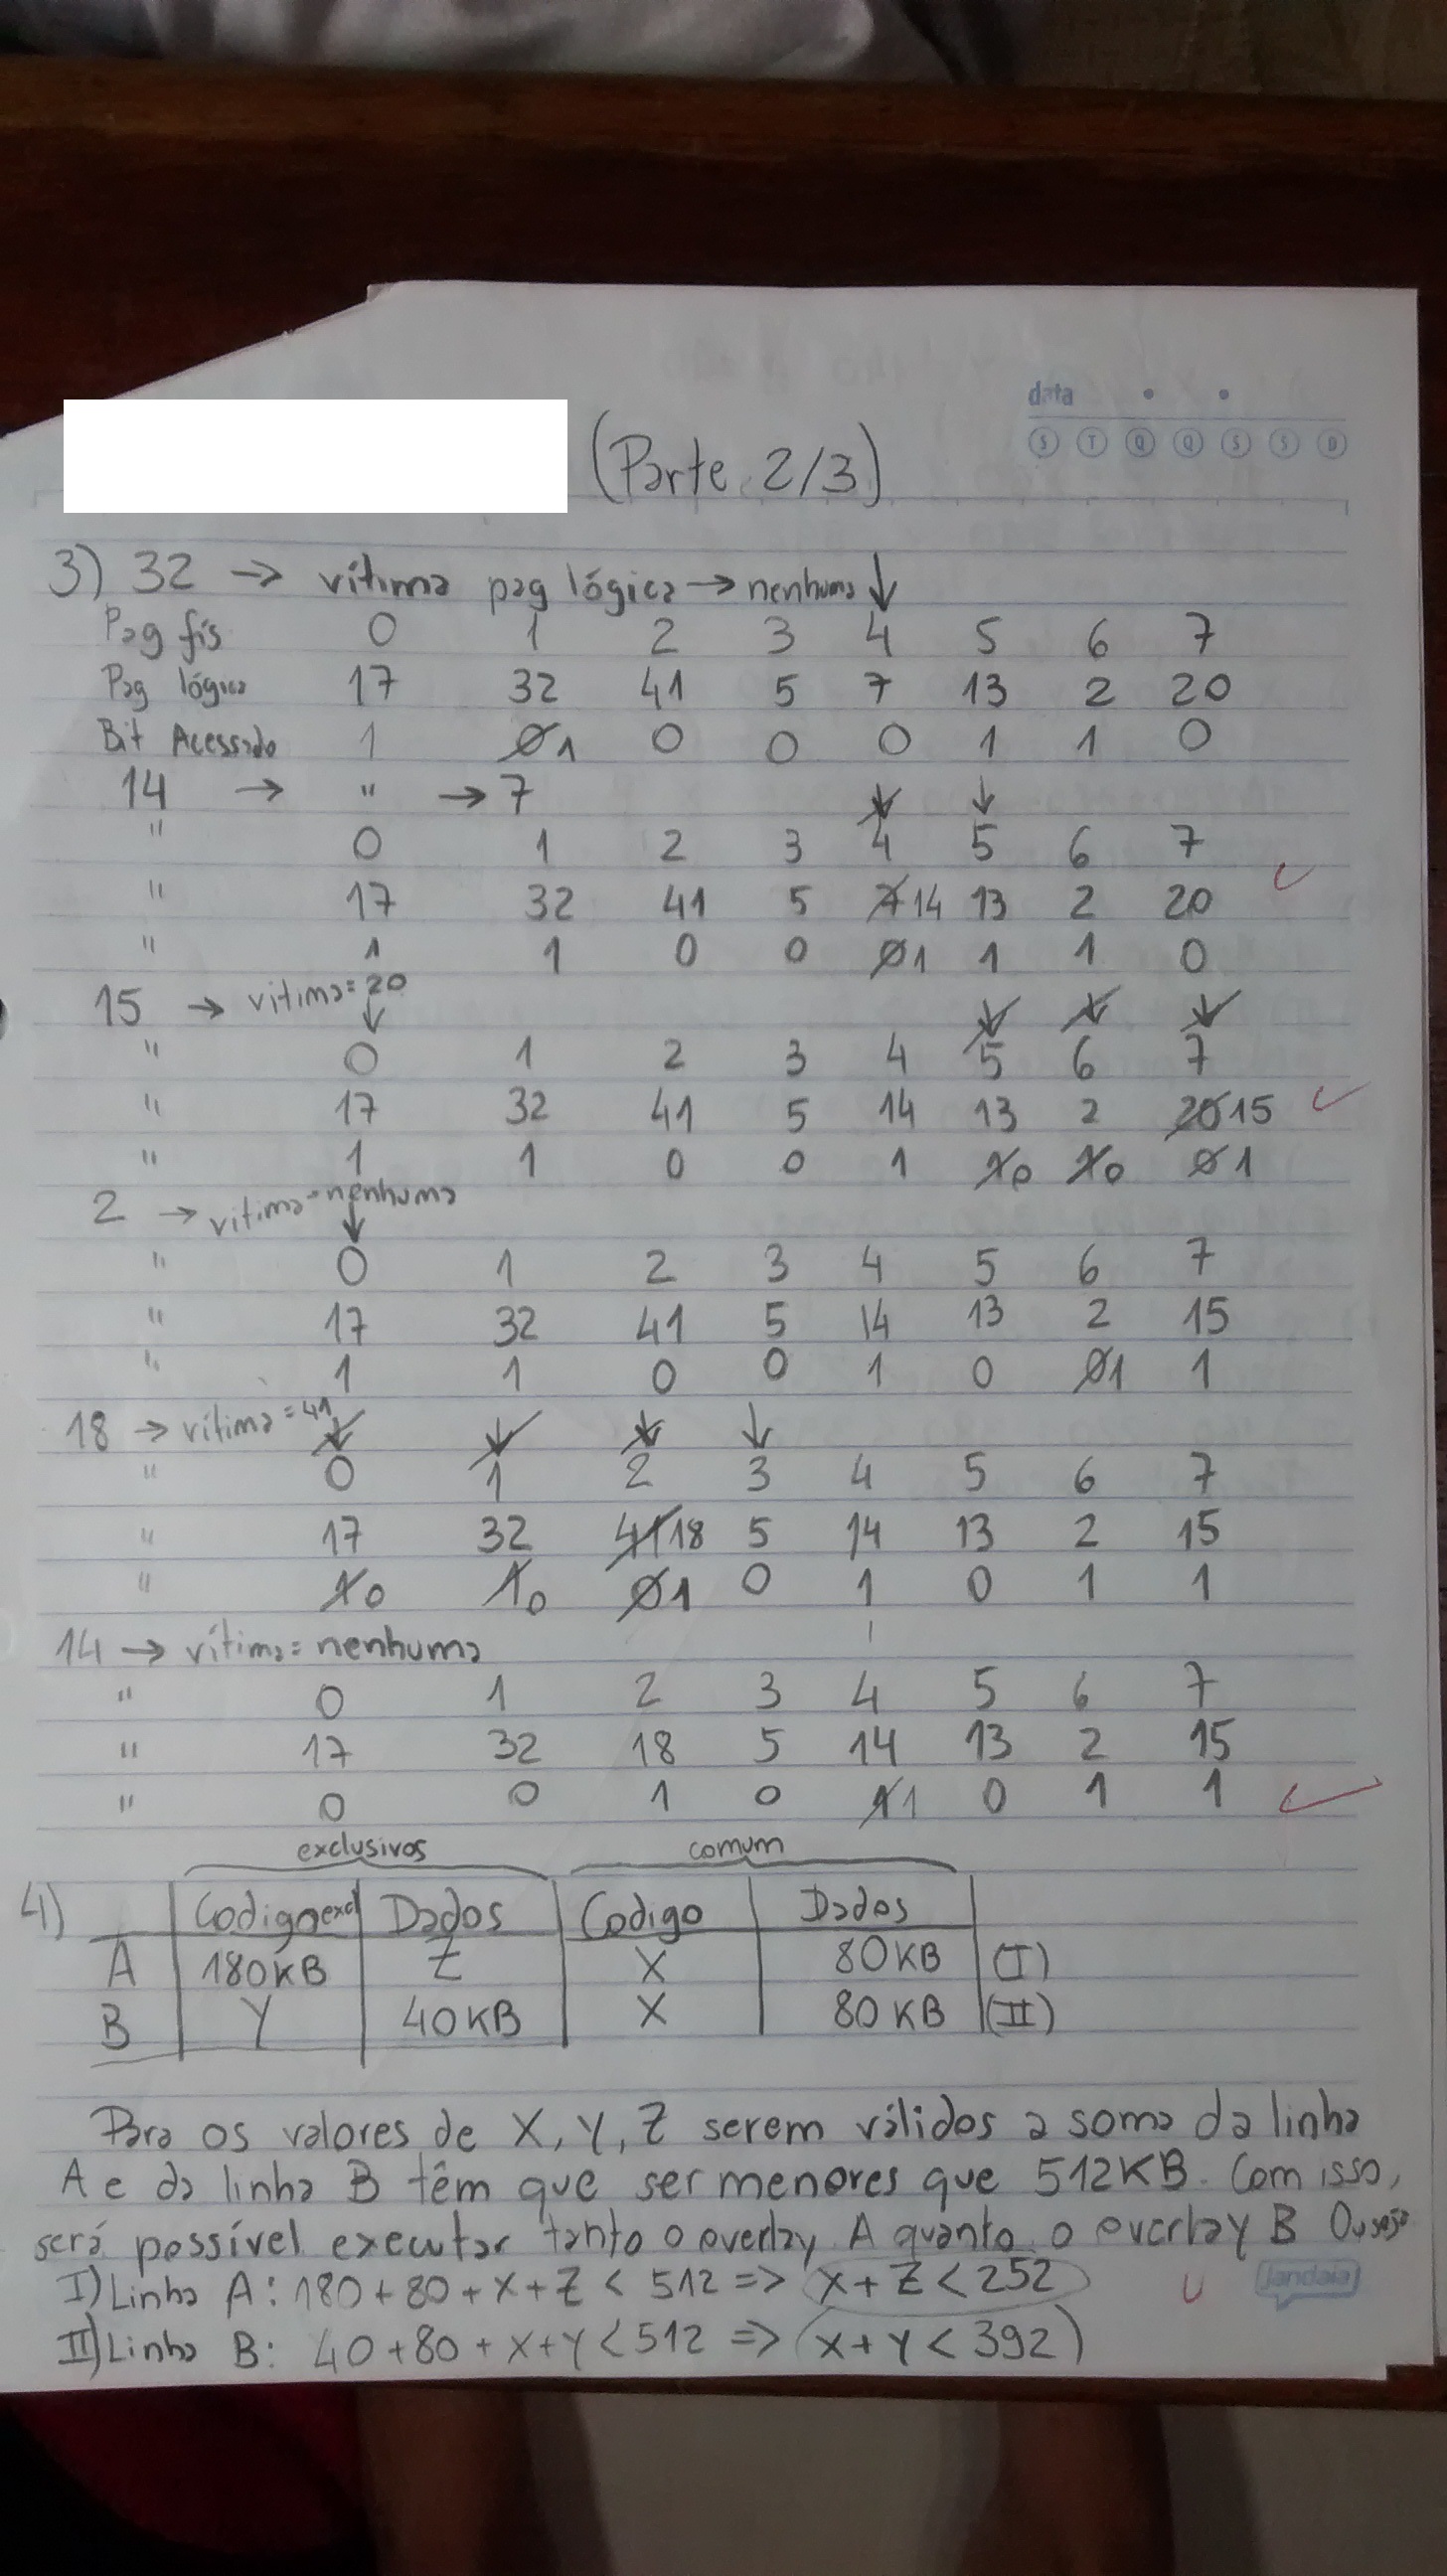 data
S T Q Q S S D
(Parte 2/3)
3) 32 → vítima pag lógica → nenhuma ↓
Pag fís 0 1 2 3 4 5 6 7
Pag lógica 17 32 41 5 7 13 2 20
Bit Acessado 1 0 1 0 0 0 1 1 0
14 → " → 7 ↓ ↓
" 0 1 2 3 4 5 6 7
" 17 32 41 5 7 14 13 2 20
" 1 1 0 0 0 1 1 1 0
15 → vítima = 20 ↓ ↓ ↓
↓
" 0 1 2 3 4 5 6 7
" 17 32 41 5 14 13 2 20 15
" 1 1 0 0 1 1 0 1 0 0 1
2 → vítima = nenhuma
↓
" 0 1 2 3 4 5 6 7
" 17 32 41 5 14 13 2 15
" 1 1 0 0 1 0 0 1 1
18 → vítima = 41 ↓ ↓ ↓ ↓
" 0 1 2 3 4 5 6 7
" 17 32 41 18 5 14 13 2 15
" 1 0 1 0 0 1 0 1 0 1 1
14 → vítima = nenhuma
" 0 1 2 3 4 5 6 7
" 17 32 18 5 14 13 2 15
" 0 0 1 0 1 1 0 1 1
exclusivos comum
4) Codigo excl Dados Codigo Dados
A 180KB Z X 80KB (I)
B Y 40KB X 80KB (II)
Para os valores de X, Y, Z serem válidos a soma da linha
A e da linha B têm que ser menores que 512KB. Com isso,
será possível executar tanto o overlay A quanto o overlay B Ou seja
I) Linha A: 180 + 80 + X + Z < 512 => X + Z < 252
jandaia
II) Linha B: 40 + 80 + X + Y < 512 => (X + Y < 392)